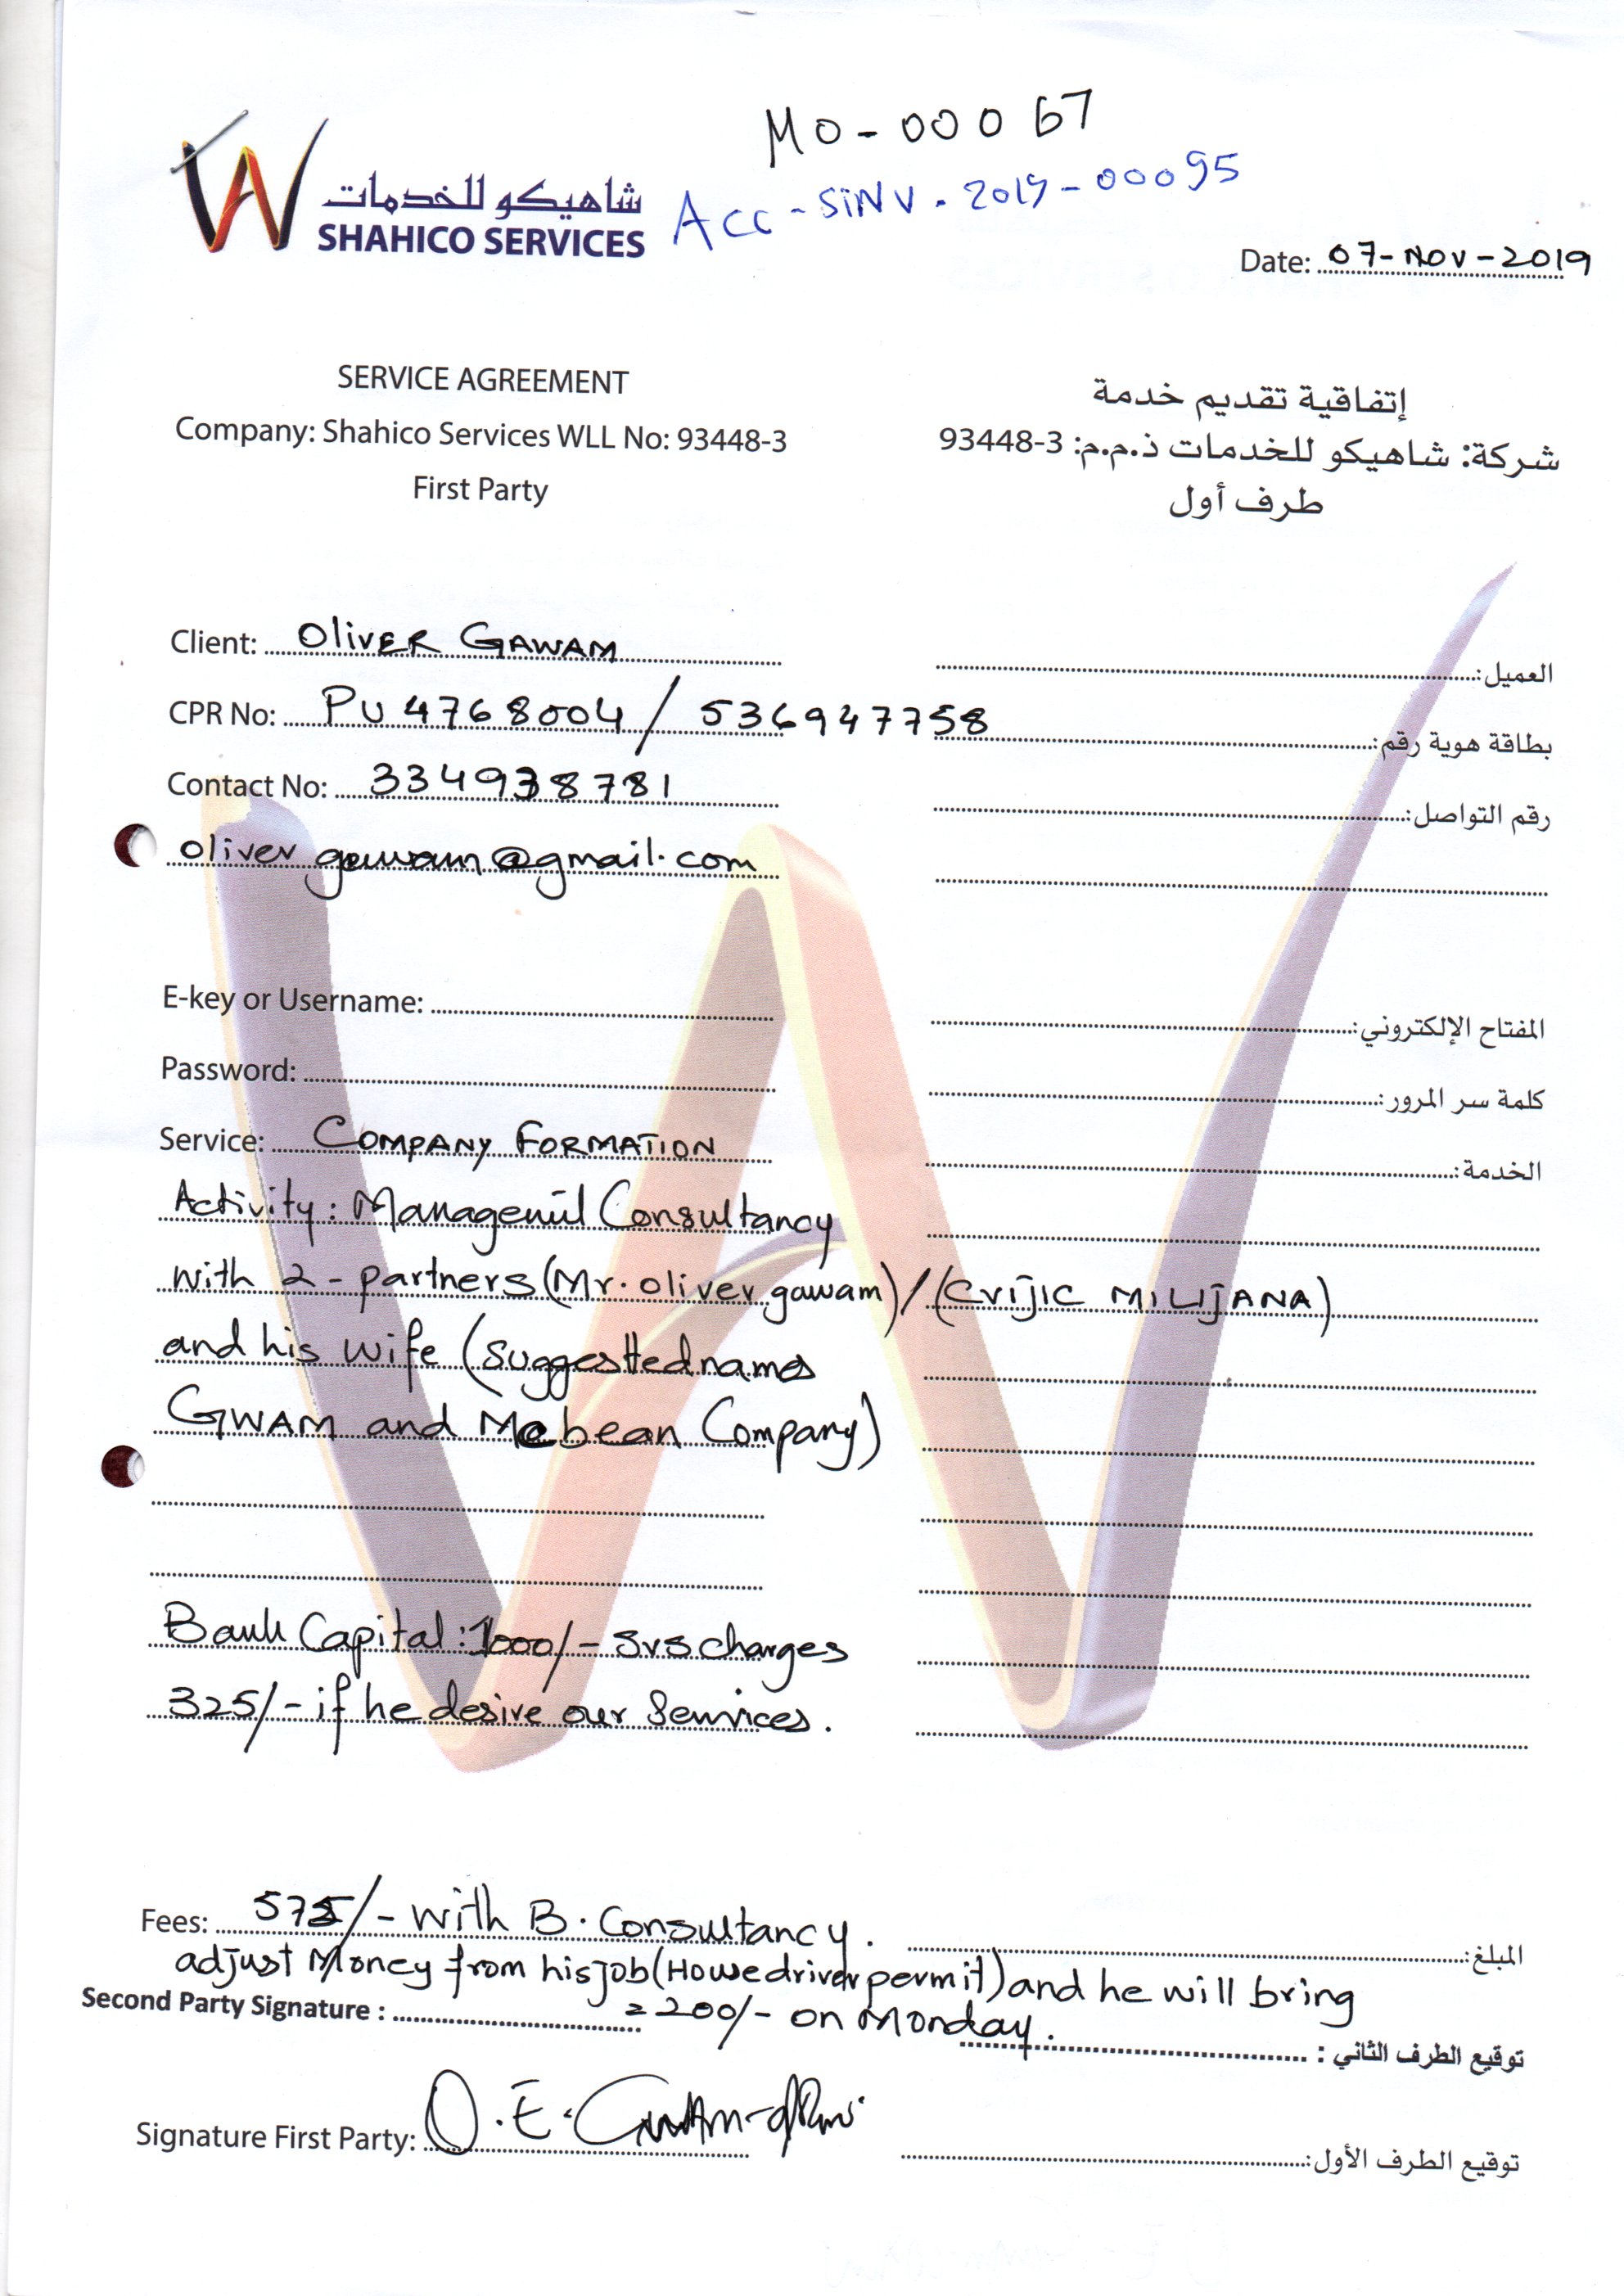 MO-00067
Acc-SiNV-2019-00095
شاهيكو للخدمات
SHAHICO SERVICES
Date: 07-Nov-2019
SERVICE AGREEMENT
Company: Shahico Services WLL No: 93448-3
First Party
إتفاقية تقديم خدمة
شركة: شاهيكو للخدمات ذ.م.م: 3-93448
طرف أول
Client: OliVER GAWAM العميل:
CPR No: PU 4768004 / 536947758 بطاقة هوية رقم:
Contact No: 334938781 رقم التواصل:
oliver gawam@gmail.com
E-key or Username: المفتاح الإلكتروني:
Password: كلمة سر المرور:
Service: COMPANY FORMATION الخدمة:
Activity: Consultancy
with 2-partners (Mr. oliver gawam) / (CVIJIC MILIJANA)
and his wife (suggestted names
GWAM and Mcbean Company)
Bank Capital: 1000/- svs charges
325/- if he desire our Services.
Fees: 575/- with B. Consultancy. المبلغ:
adjust Money from his job ( driver permit) and he will bring
Second Party Signature : = 200/- on Monday. توقيع الطرف الثاني :
Signature First Party: O.E. توقيع الطرف الأول: